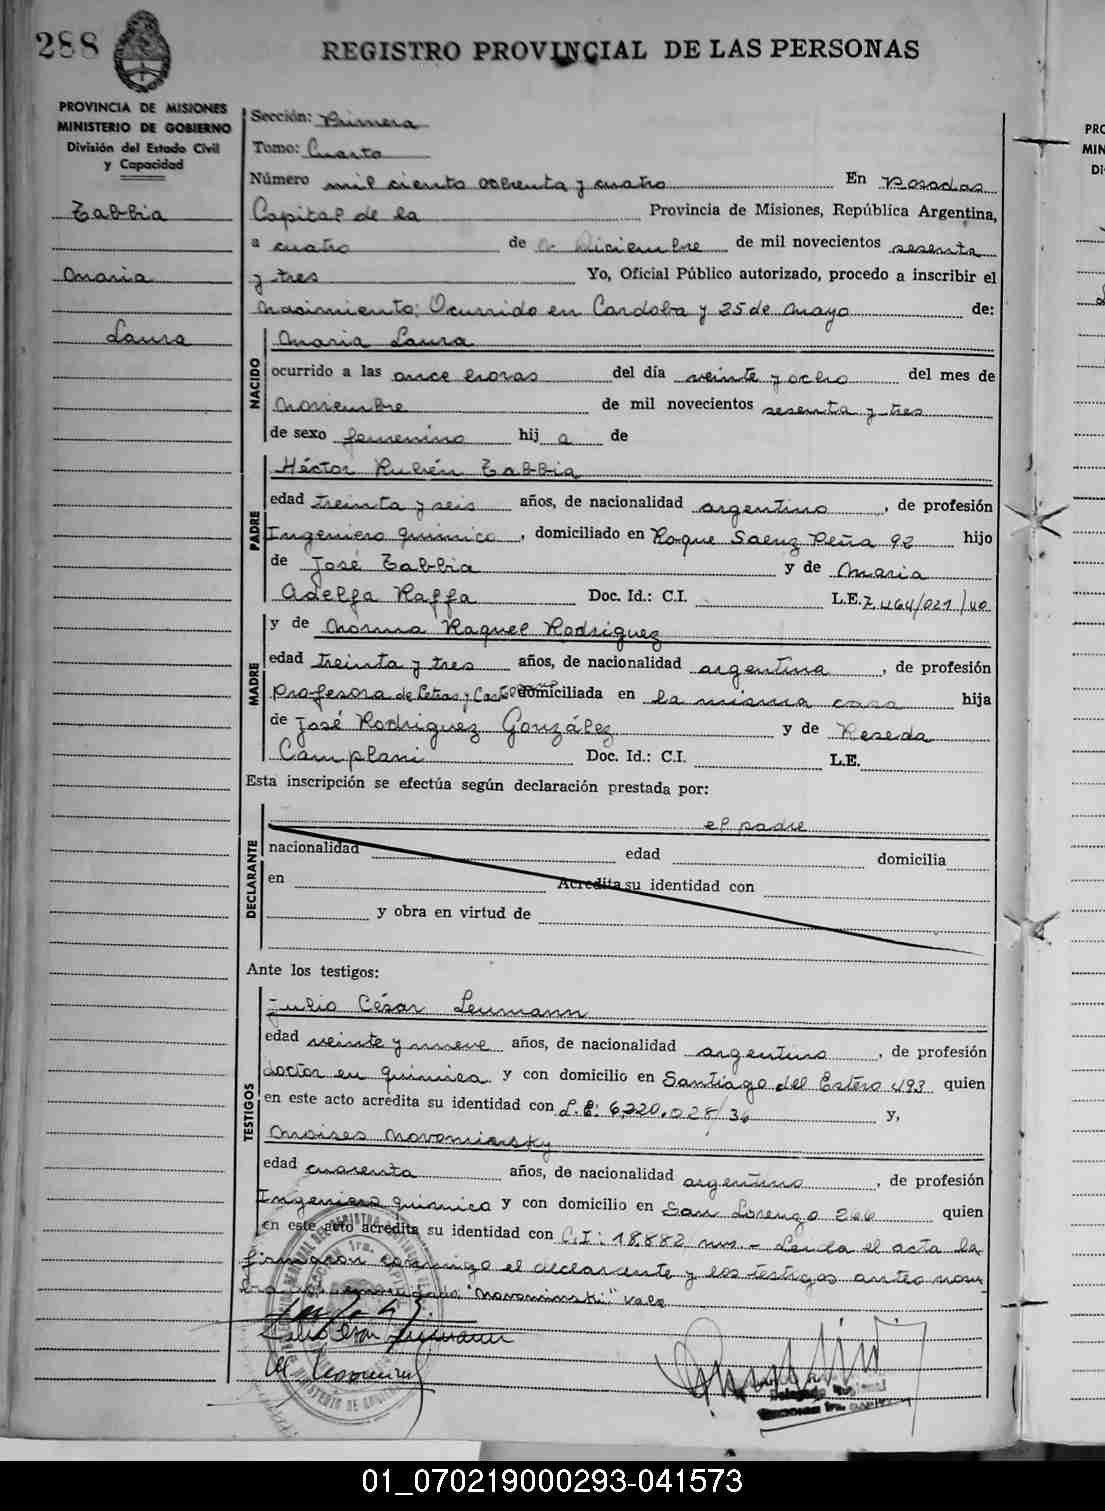 288
REGISTRO PROVINCIAL DE LAS PERSONAS
PROVINCIA DE MISIONES
MINISTERIO DE GOBIERNO
División del Estado Civil
y Capacidad
Tabbia
Maria
Laura
Sección: Primera
Tomo: Cuarto
Número mil ciento ochenta y cuatro En Posadas
Capital de la Provincia de Misiones, República Argentina,
a cuatro de Diciembre de mil novecientos sesenta
y tres Yo, Oficial Público autorizado, procedo a inscribir el
Nacimiento: Ocurrido en Cordoba y 25 de Mayo de:
NACIDO
Maria Laura
ocurrido a las once horas del día veinte y ocho del mes de
Noviembre de mil novecientos sesenta y tres
de sexo femenino hij a de
PADRE
Héctor Rubén Tabbia
edad treinta y seis años, de nacionalidad argentino, de profesión
Ingeniero quimico, domiciliado en Roque Saenz Peña 92 hijo
de José Tabbia y de Maria
Adelfa Raffa Doc. Id.: C.I. L.E. 7.464/021/40
MADRE
y de Norma Raquel Rodriguez
edad treinta y tres años, de nacionalidad argentina, de profesión
Profesora de Letras y domiciliada en la misma casa hija
de José Rodriguez González y de Reseda
Camplani Doc. Id.: C.I. L.E.
Esta inscripción se efectúa según declaración prestada por:
DECLARANTE
el padre
nacionalidad edad domicilia
en Acredita su identidad con
y obra en virtud de
Ante los testigos:
TESTIGOS
Julio César Leumann
edad veinte y nueve años, de nacionalidad argentino, de profesión
doctor en quimica y con domicilio en Santiago del Estero 493 quien
en este acto acredita su identidad con L.E: 6.220.028/36 y,
Moises Novominsky
edad cuarenta años, de nacionalidad argentino, de profesión
Ingeniero quimico y con domicilio en San Lorenzo 266 quien
en este acto acredita su identidad con C.I: 18.882 mns. - Leida el acta la
firmaron conmigo el declarante y los testigos antes nom
enmendado "Novominski" vale
Julio César Leumann
01_070219000293-041573